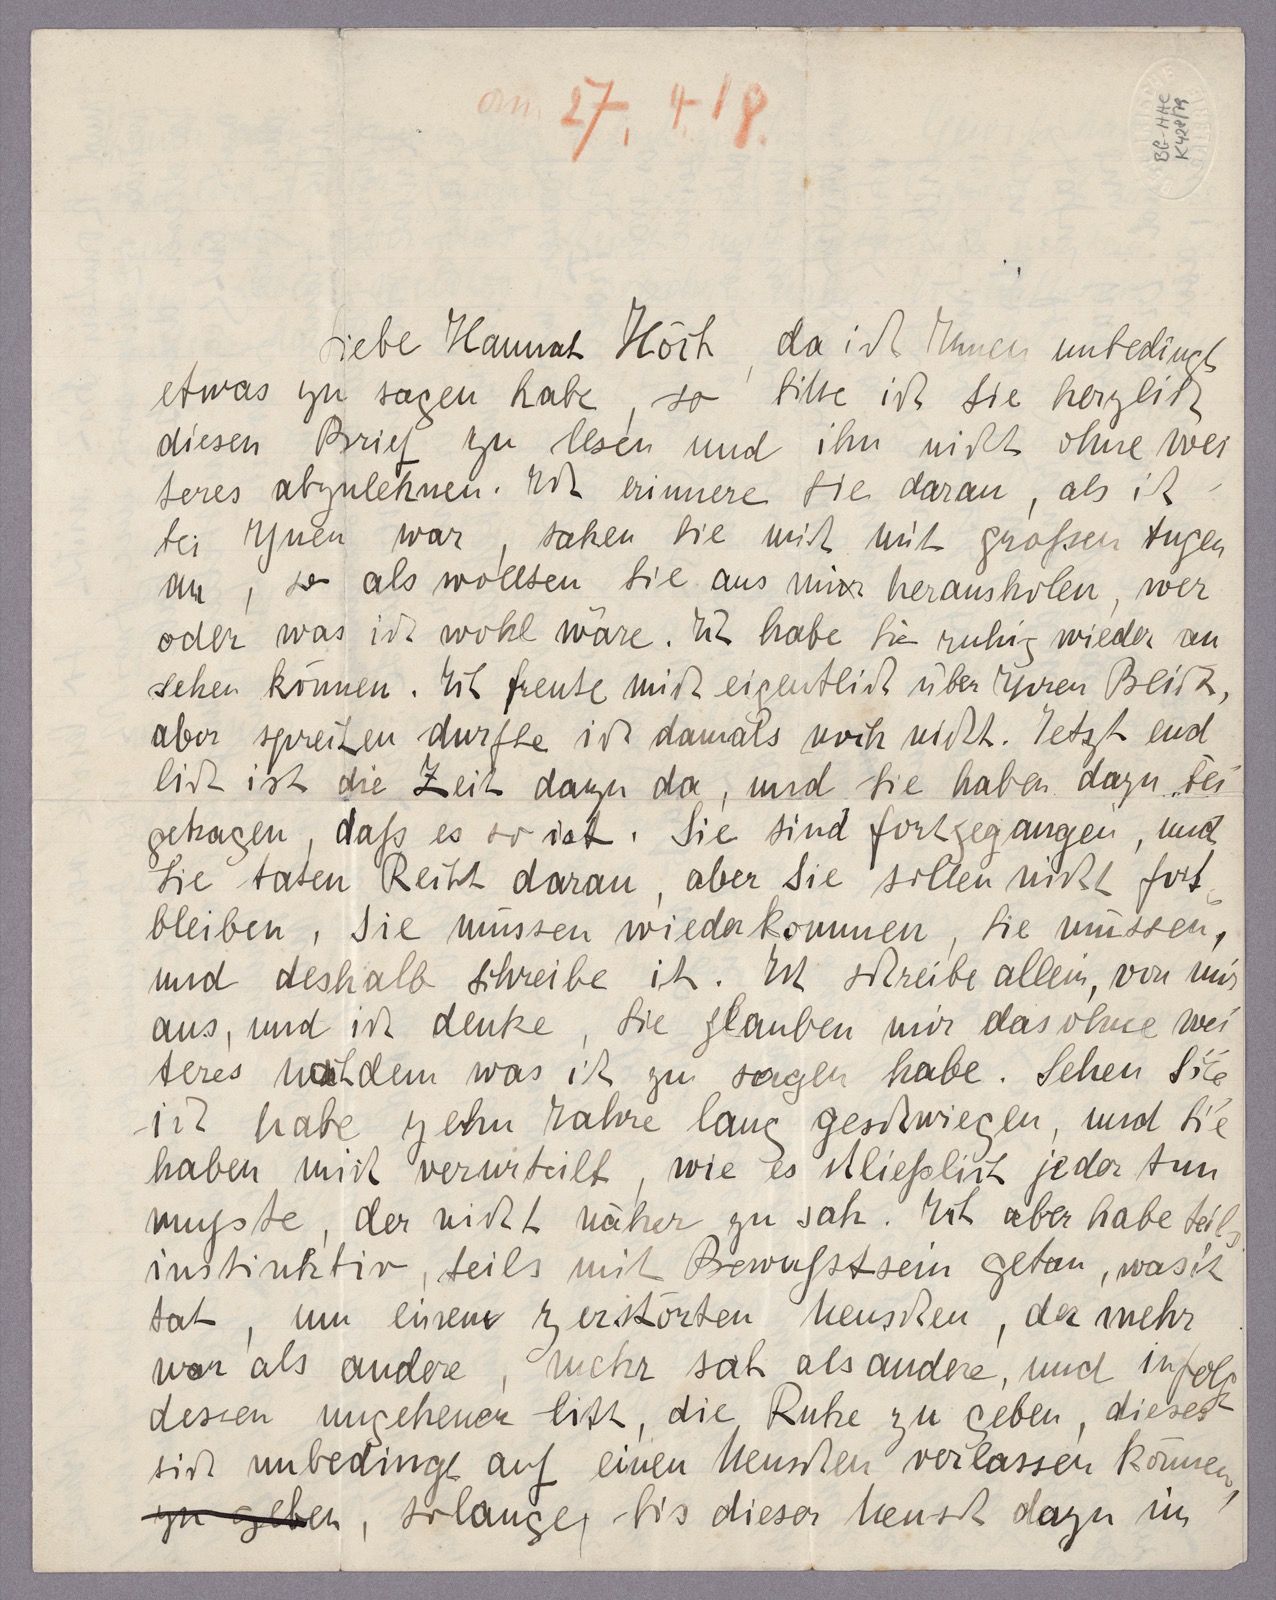 am 27. 4. 18.
BG-HHC
K 428/79
Liebe Hannah Höch, da ich Ihnen unbedingt
etwas zu sagen habe, so bitte ich Sie herzlich
diesen Brief zu lesen und ihn nicht ohne wei
teres abzulehnen. Ich erinnere Sie daran, als ich
bei Ihnen war, sahen Sie mich mit großen Augen
an, so als wollten Sie aus mir herausholen, wer
oder was ich wohl wäre. Ich habe Sie ruhig wieder an
sehen können. Ich freute mich eigentlich über Ihren Blick,
aber sprechen durfte ich damals noch nicht. Jetzt end
lich ist die Zeit dazu da, und Sie haben dazu bei
getragen, daß es so ist. Sie sind fortgegangen, und
Sie taten Recht daran, aber Sie sollen nicht fort
bleiben, Sie müssen wiederkommen, Sie müssen,
und deshalb schreibe ich. Ich schreibe allein, von mir
aus, und ich denke, Sie glauben mir das ohne wei
teres nach dem was ich zu sagen habe. Sehen Sie
ich habe zehn Jahre lang geschwiegen, und Sie
haben mich verurteilt, wie es schließlich jeder tun
musste, der nicht näher zu sah. Ich aber habe teils
instinktiv, teils mit Bewußtsein getan, was ich
tat, um einem zerstörten Menschen, der mehr
war als andere, mehr sah als andere, und infolge
dessen ungeheuer litt, die Ruhe zu geben, dieses
sich unbedingt auf einen Menschen verlassen können,
zu geben, solange, bis dieser Mensch dazu im